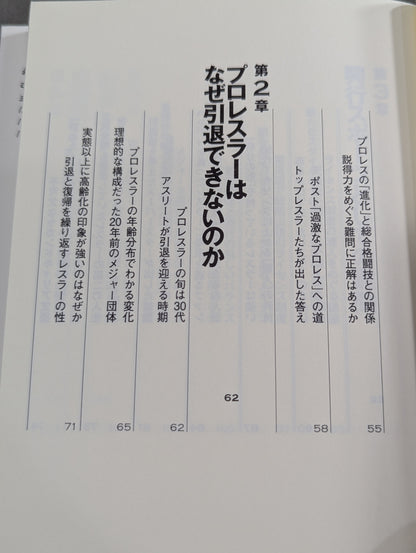 プロレスの「進化」と総合格闘技との関係
説得力をめぐる難問に正解はあるか
55
ポスト「過激なプロレス」への道
トップレスラーたちが出した答え
58
第2章
プロレスラーは
なぜ引退できないのか
62
プロレスラーの旬は30代
アスリートが引退を迎える時期
62
プロレスラーの年齢分布でわかる変化
理想的な構成だった20年前のメジャー団体
65
実態以上に高齢化の印象が強いのはなぜか
引退と復帰を繰り返すレスラーの性
71